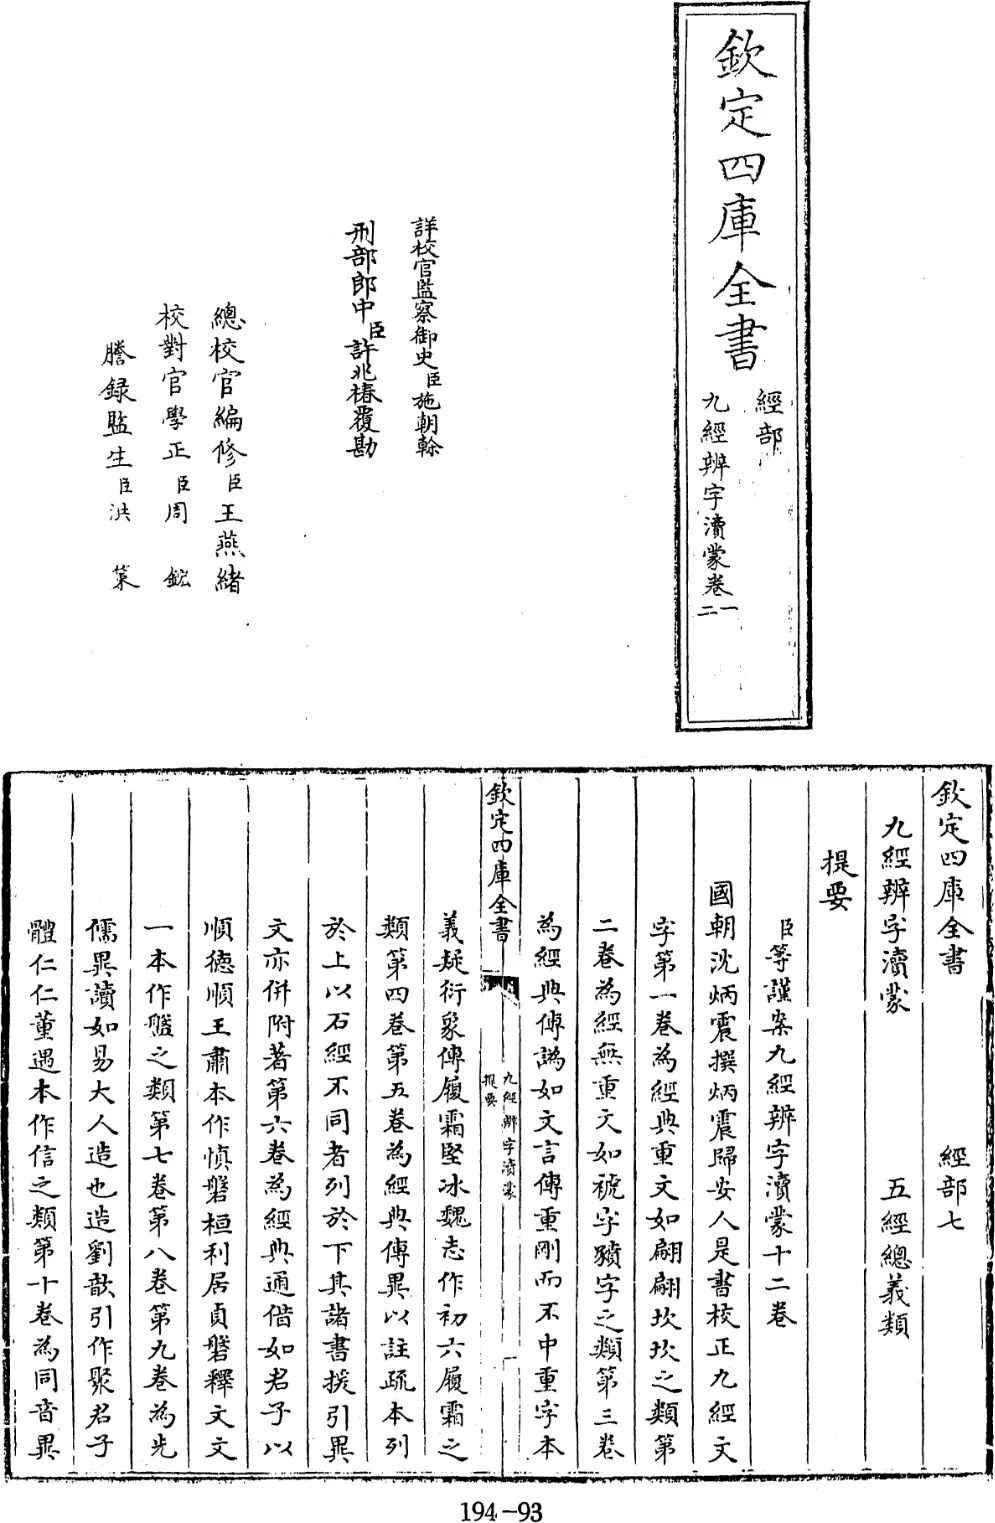 欽定四庫全書
經部
九經辨字瀆蒙卷一
二
詳校官監察御史臣施朝榦
刑部郎中臣許兆椿覆勘
總校官編修臣王燕緒
校對官學正臣周鋐
謄録監生臣洪䇿
欽定四庫全書 經部七
九經辨字瀆蒙 五經總義類
提要
臣等謹案九經辨字瀆蒙十二卷
國朝沈炳震撰炳震歸安人是書校正九經文
字第一卷為經典重文如翩翩坎坎之類第
二卷為經無重文如褫字豶字之類第三卷
為經典傳譌如文言傳重剛而不中重字本
欽定四庫全書
九經辨字瀆蒙
提要
義疑衍象傳履霜堅冰魏志作初六履霜之
類第四卷第五卷為經典傳異以註疏本列
於上以石經不同者列於下其諸書援引異
文亦併附著第六卷為經典通借如君子以
順德順王肅本作慎磐桓利居貞磐釋文文
一本作盤之類第七卷第八卷第九卷為先
儒異讀如易大人造也造劉歆引作聚君子
體仁仁董遇本作信之類第十卷為同音異
194-93